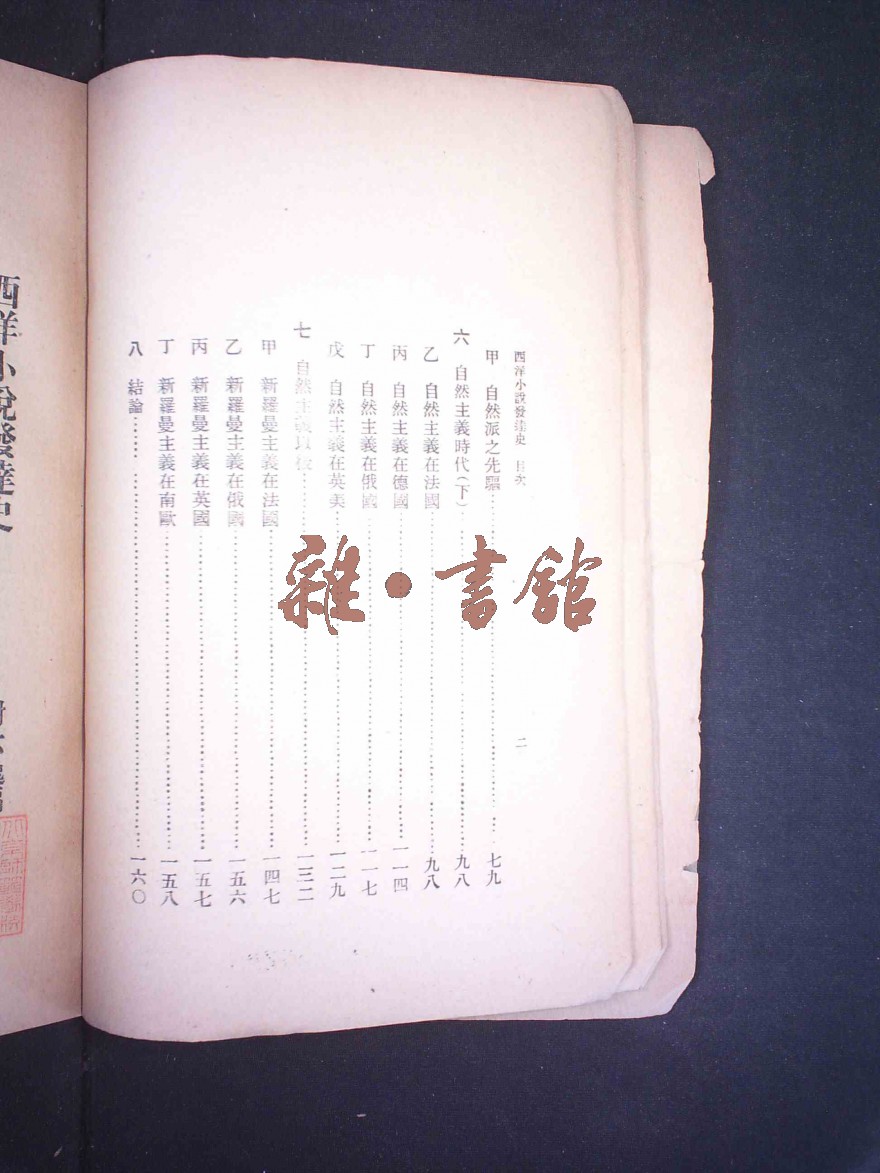 西洋小說發達史　目次
二
甲　自然派之先驅……七九
六　自然主義時代（下）……九八
乙　自然主義在法國……九八
丙　自然主義在德國……一一四
丁　自然主義在俄國……一一七
戊　自然主義在英美……一二九
七　自然主義以後……一三二
甲　新羅曼主義在法國……一四七
乙　新羅曼主義在俄國……一五六
丙　新羅曼主義在英國……一五七
丁　新羅曼主義在南歐……一五八
八　結論……一六〇
西洋小說發達史
雜・書館